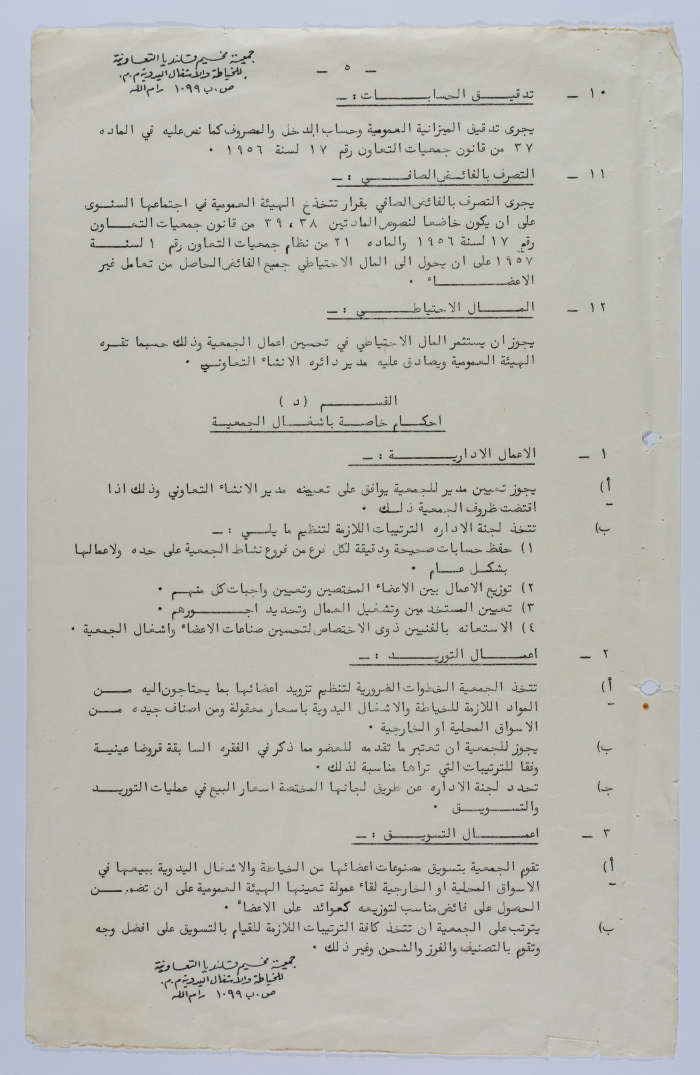 جمعية مخيم قلنديا التعاونية
للخياطة والأشغال اليدوية م.م.
ص.ب ١٠٩٩ رام الله
- ٥ -
١٠ - تدقيق الحسابات : -
يجرى تدقيق الميزانية العمومية وحساب الدخل والمصروف كما نص عليه في الماده
٣٧ من قانون جمعيات التعاون رقم ١٧ لسنة ١٩٥٦ ٠
١١ - التصرف بالفائض الصافي : -
يجرى التصرف بالفائض الصافي بقرار تتخذخ الهيئة العمومية في اجتماعها السنوى
على ان يكون خاضعا لنصوص المادتين ٣٨ ، ٣٩ من قانون جمعيات التعاون
رقم ١٧ لسنة ١٩٥٦ والماده ٢١ من نظام جمعيات التعاون رقم ١ لسنة
١٩٥٧ على ان يحول الى المال الاحتياطي جميع الفائض الحاصل من تعامل غير
الاعضاء ٠
١٢ - المال الاحتياطي : -
يجوز ان يستثمر المال الاحتياطي في تحسين اعمال الجمعية وذلك حسبما تقره
الهيئة العمومية ويصادق عليه مدير دائره الانشاء التعاوني ٠
القسم ( د )
احكام خاصة باشغال الجمعية
١ - الاعمال الادارية : -
أ) يجوز تعيين مدير للجمعية يوافق على تعيينه مدير الانشاء التعاوني وذلك اذا
اقتضت ظروف الجمعية ذلك ٠
ب) تتخذ لجنة الاداره الترتيبات اللازمة لتنظيم ما يلي : -
١) حفظ حسابات صحيحة ودقيقة لكل فرع من فروع نشاط الجمعية على حده ولاعمالها
بشكل عام ٠
٢) توزيع الاعمال بين الاعضاء المختصين وتعيين واجبات كل منهم ٠
٣) تعيين المستخدمين وتشغيل العمال وتحديد اجورهم ٠
٤) الاستعانه بالفنيين ذوى الاختصاص لتحسين صناعات الاعضاء واشغال الجمعية ٠
٢ - اعمال التوريد : -
أ) تتخذ الجمعية الخطوات الضرورية لتنظيم تزويد اعضائها بما يحتاجون اليه من
المواد اللازمة للخياطة والاشغال اليدوية باسعار معقولة ومن اصناف جيده من
الاسواق المحلية او الخارجية ٠
ب) يجوز للجمعية ان تعتبر ما تقدمه للعضو مما ذكر في الفقره السابقة قروضا عينية
وفقا للترتيبات التي تراها مناسبة لذلك ٠
جـ) تحدد لجنة الاداره عن طريق لجانها المختصة اسعار البيع في عمليات التوريد
والتسويق ٠
٣ - اعمال التسويق : -
أ) تقوم الجمعية بتسويق مصنوعات اعضائها من الخياطة والاشغال اليدوية ببيعها في
الاسواق المحلية او الخارجية لقاء عمولة تعينها الهيئة العمومية على ان تضمن
الحصول على فائض مناسب لتوزيعه كعوائد على الاعضاء ٠
ب) يترتب على الجمعية ان تتخذ كافة الترتيبات اللازمة للقيام بالتسويق على افضل وجه
وتقوم بالتصنيف والفرز والشحن وغير ذلك ٠
جمعية مخيم قلنديا التعاونية
للخياطة والأشغال اليدوية م.م.
ص.ب ١٠٩٩ رام الله